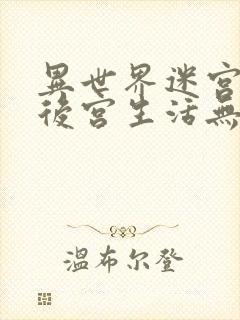 異世界迷宮
後宮生活無
溫布尔登